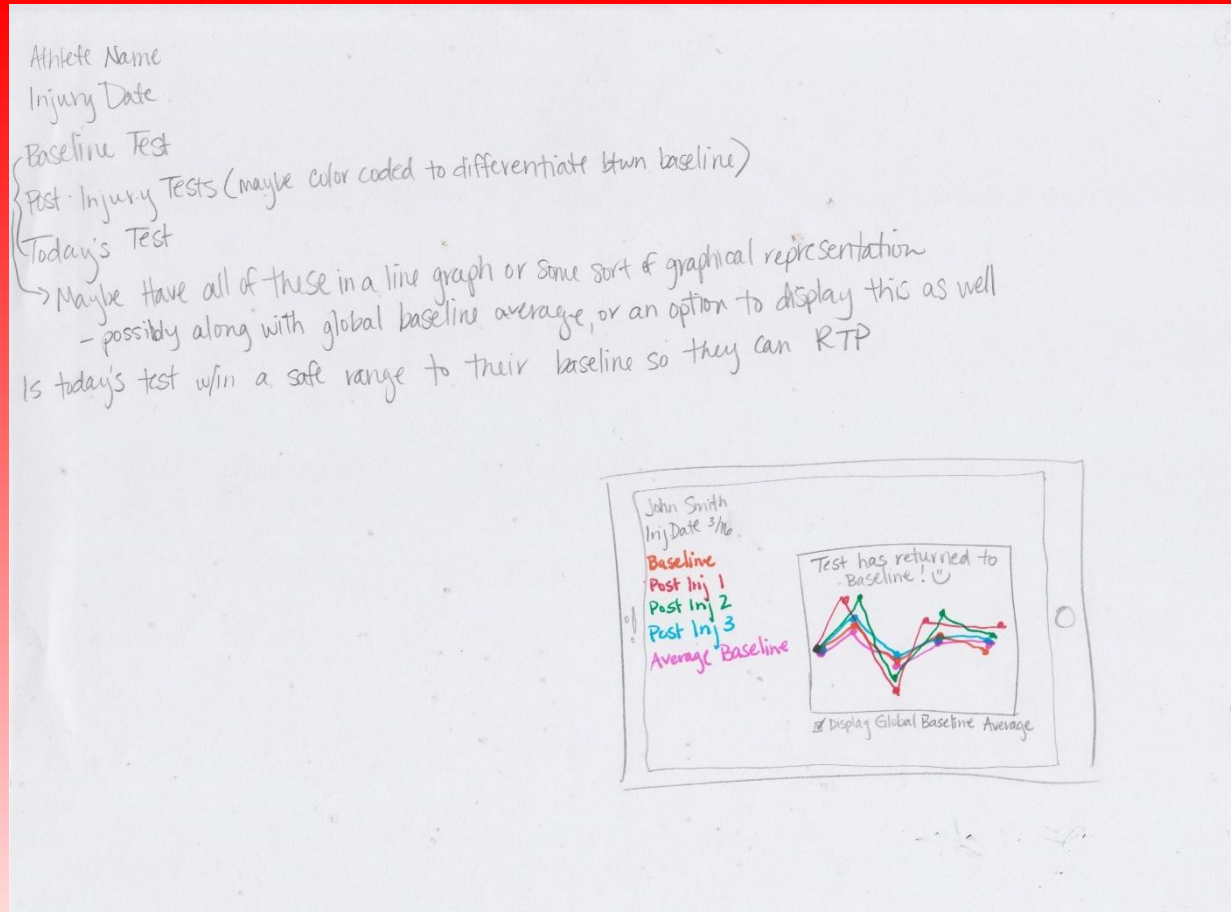 Athlete Name
Injury Date
Baseline Test
Post-Injury Tests (maybe color coded to differentiate btwn baseline)
Today's Test
→ Maybe Have all of these in a line graph or some sort of graphical representation
- possibly along with global baseline average, or an option to display this as well
Is today's test w/in a safe range to their baseline so they can RTP
John Smith
Inj Date 3/16
Baseline
Post Inj 1
Post Inj 2
Post Inj 3
Average Baseline
Test has returned to
Baseline! ☺
Display Global Baseline Average